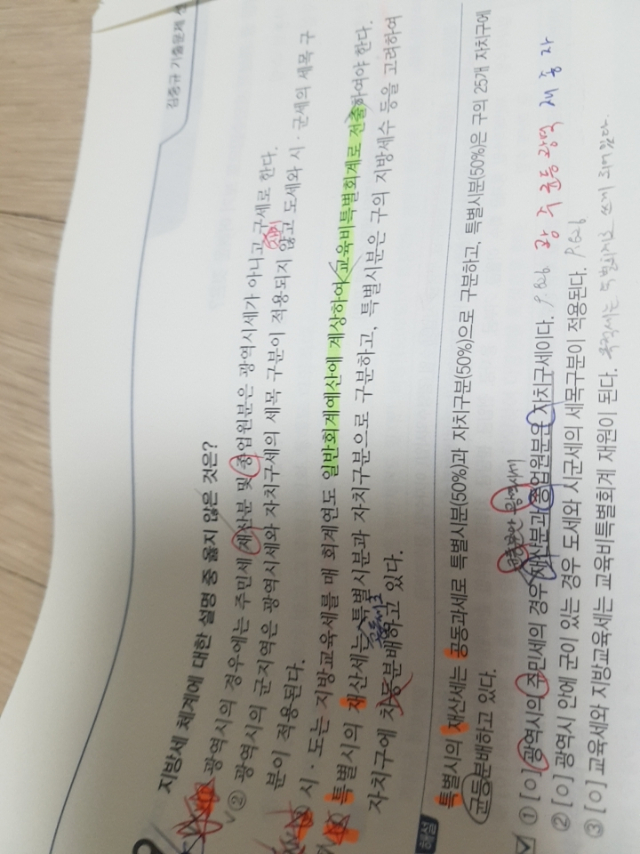 김중규 기출문제
지방세 체계에 대한 설명 중 옳지 않은 것은?
광역시의 경우에는 주민세 재산분 및 종업원분은 광역시세가 아니고 구세로 한다.
② 광역시의 군지역은 광역시세와 자치구세의 세목 구분이 적용되지 않고 도세와 시·군세의 세목 구
분이 적용된다.
시·도는 지방교육세를 매 회계연도 일반회계예산에 계상하여 교육비특별회계로 전출하여야 한다.
특별시의 재산세는 특별시분과 자치구분으로 구분하고, 특별시분은 구의 지방세수 등을 고려하여
자치구에 차등분배하고 있다.
균등
해설
특별시의 재산세는 공동과세로 특별시분(50%)과 자치구분(50%)으로 구분하고, 특별시분(50%)은 구의 25개 자치구에
균등분배하고 있다.
균등분만 광역시세
① [O] 광역시의 주민세의 경우 재산분과 종업원분은 자치구세이다. P.626 광 주 균등 광역 재 종 자
② [O] 광역시 안에 군이 있는 경우 도세와 시군세의 세목구분이 적용된다. P.626
③ [O] 교육세와 지방교육세는 교육비특별회계 재원이 된다.